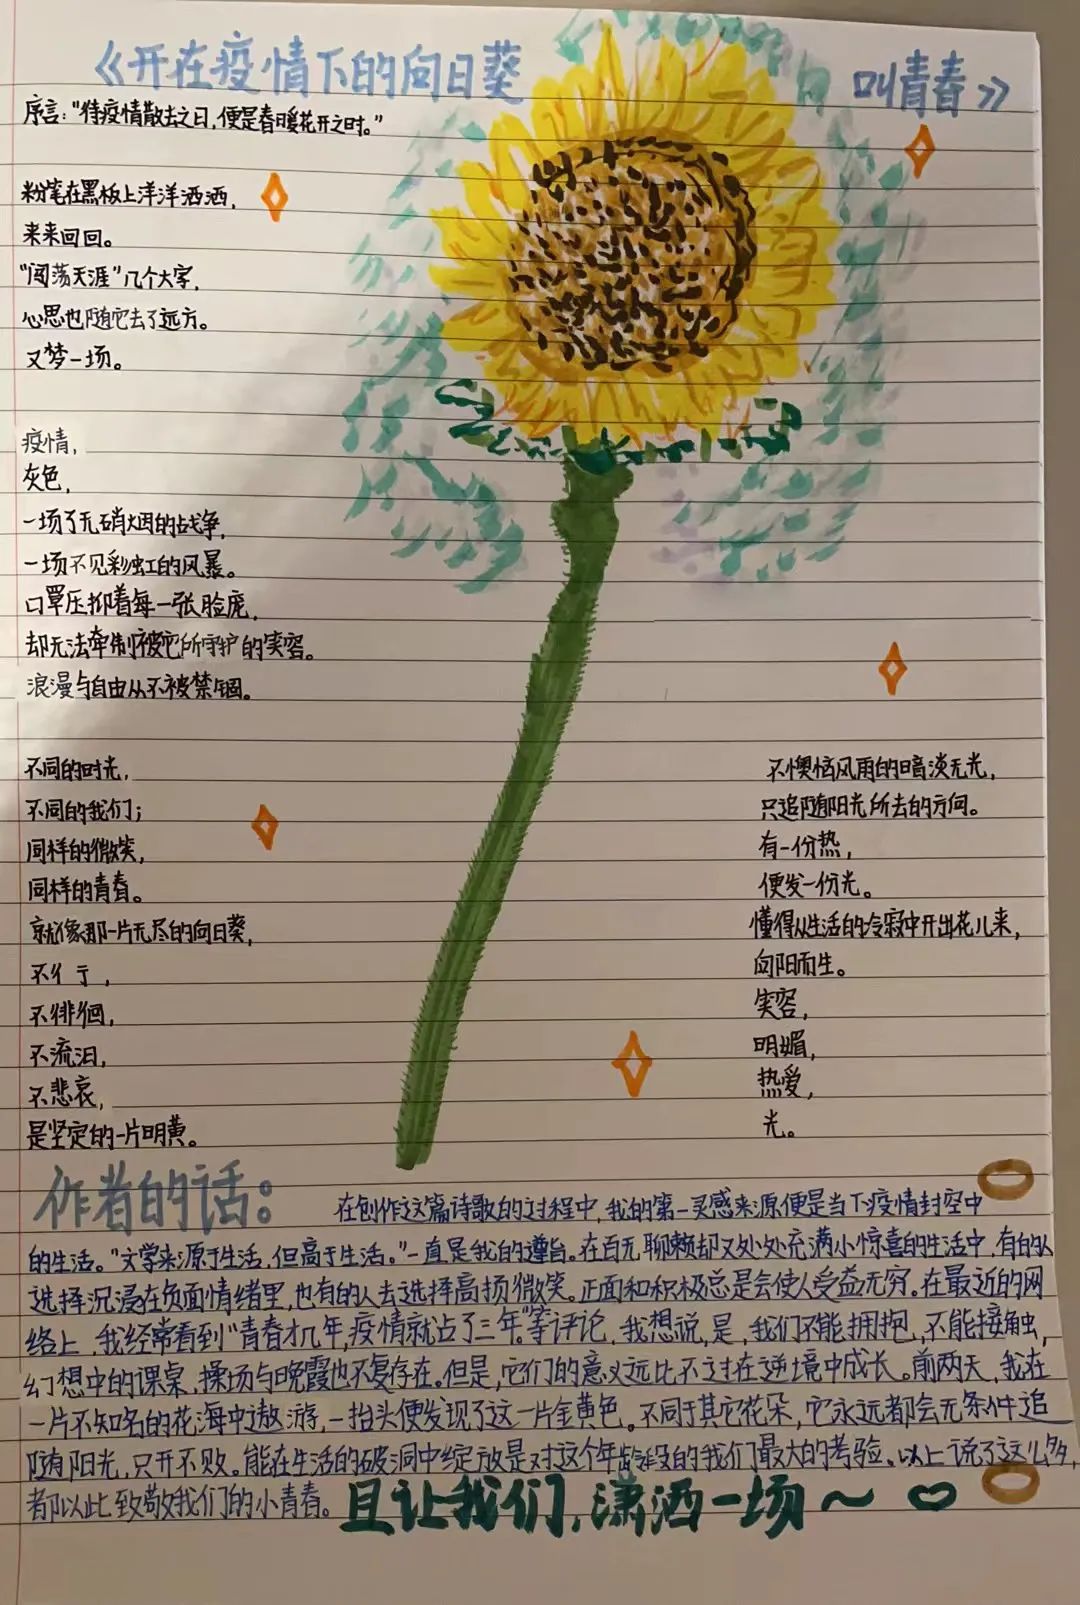 《开在疫情下的向日葵 叫青春》
序言：“待疫情散去之日，便是春暖花开之时。”
粉笔在黑板上洋洋洒洒，
来来回回。
“闯荡天涯”几个大字，
心思也随它去了远方。
又梦一场。
疫情，
灰色，
一场了无硝烟的战争，
一场不见彩虹的风暴。
口罩压抑着每一张脸庞，
却无法牵制被它所守护的笑容。
浪漫与自由从不被禁锢。
不同的时光，
不同的我们；
同样的微笑，
同样的青春。
就像那一片无尽的向日葵，
不彳亍，
不徘徊，
不流泪，
不悲哀，
是坚定的一片明黄。
不懊恼风雨的暗淡无光，
只追随阳光所去的方向。
有一份热，
便发一份光。
懂得从生活的冷寂中开出花儿来，
向阳而生。
笑容，
明媚，
热爱，
光。
作者的话：
在创作这篇诗歌的过程中，我的第一灵感来源便是当下疫情封空中
的生活。“文学来源于生活，但高于生活。”一直是我的遵旨。在百无聊赖却又处处充满小惊喜的生活中，有的人
选择沉浸在负面情绪里，也有的人去选择高扬微笑。正面和积极总是会使人受益无穷。在最近的网
络上，我经常看到“青春才几年，疫情就占了三年。”等评论，我想说，是，我们不能拥抱，不能接触，
幻想中的课桌，操场与晚霞也不复存在。但是，它们的意义远比不过在逆境中成长。前两天，我在
一片不知名的花海中遨游，一抬头便发现了这一片金黄色。不同于其它花朵，它永远都会无条件追
随阳光，只开不败。能在生活的破洞中绽放是对这个年龄段的我们最大的考验。以上说了这么多，
都以此致敬我们的小青春。 且让我们，潇洒一场～